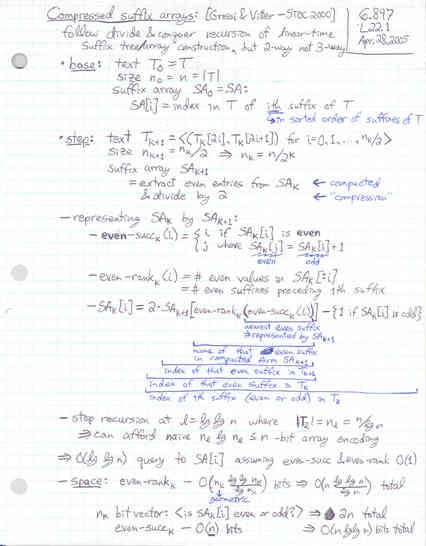 Compressed suffix arrays: [Grossi & Vitter – STOC 2000]
6.897
L22.1
Apr. 28, 2005
follow divide & conquer recursion of linear-time
suffix tree/array construction, but 2-way not 3-way
• base: text T₀ = T
size n₀ = n = |T|
suffix array SA₀ = SA:
SA[i] = index in T of ith suffix of T
↳ in sorted order of suffixes of T
• step: text Tₖ₊₁ = <(Tₖ[2i], Tₖ[2i+1]) for i=0,1,...,nₖ/2>
size nₖ₊₁ = nₖ/2 ⇒ nₖ = n/2ᵏ
suffix array SAₖ₊₁
= extract even entries from SAₖ ← compacted
& divide by 2 ← "compression"
– representing SAₖ by SAₖ₊₁:
– even-succₖ(i) = { i if SAₖ[i] is even
{ j where SAₖ[j] = SAₖ[i]+1
even odd
– even-rankₖ(i) = # even values in SAₖ[:i]
= # even suffixes preceding ith suffix
– SAₖ[i] = 2·SAₖ₊₁[even-rankₖ(even-succₖ(i))] – {1 if SAₖ[i] is odd}
nearest even suffix
represented by SAₖ₊₁
name of that even suffix
in compacted form SAₖ₊₁
index of that even suffix in Tₖ₊₁
index of that even suffix in Tₖ
index of ith suffix (even or odd) in Tₖ
– stop recursion at ℓ = lg lg n where |Tℓ| = nℓ = n/lg n
⇒ can afford naive nℓ lg nℓ ≤ n -bit array encoding
⇒ O(lg lg n) query to SA[i] assuming even-succ & even-rank O(1)
– space: even-rankₖ – O(nₖ lg lg nₖ / lg nₖ) bits ⇒ O(n lg lg n / lg n) total
↳ geometric
nₖ bit vector: <is SAₖ[i] even or odd?> ⇒ 2n total
even-succₖ – O(n) bits ⇒ O(n lg lg n) bits total